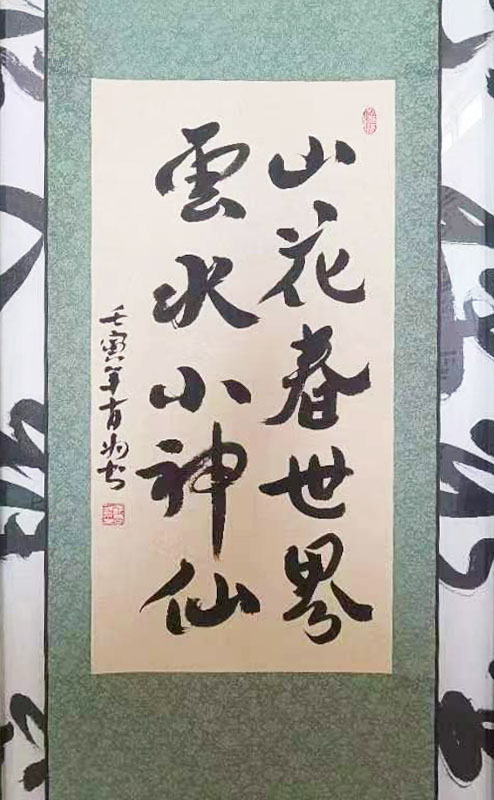 山花春世界
雲水小神仙
壬寅年